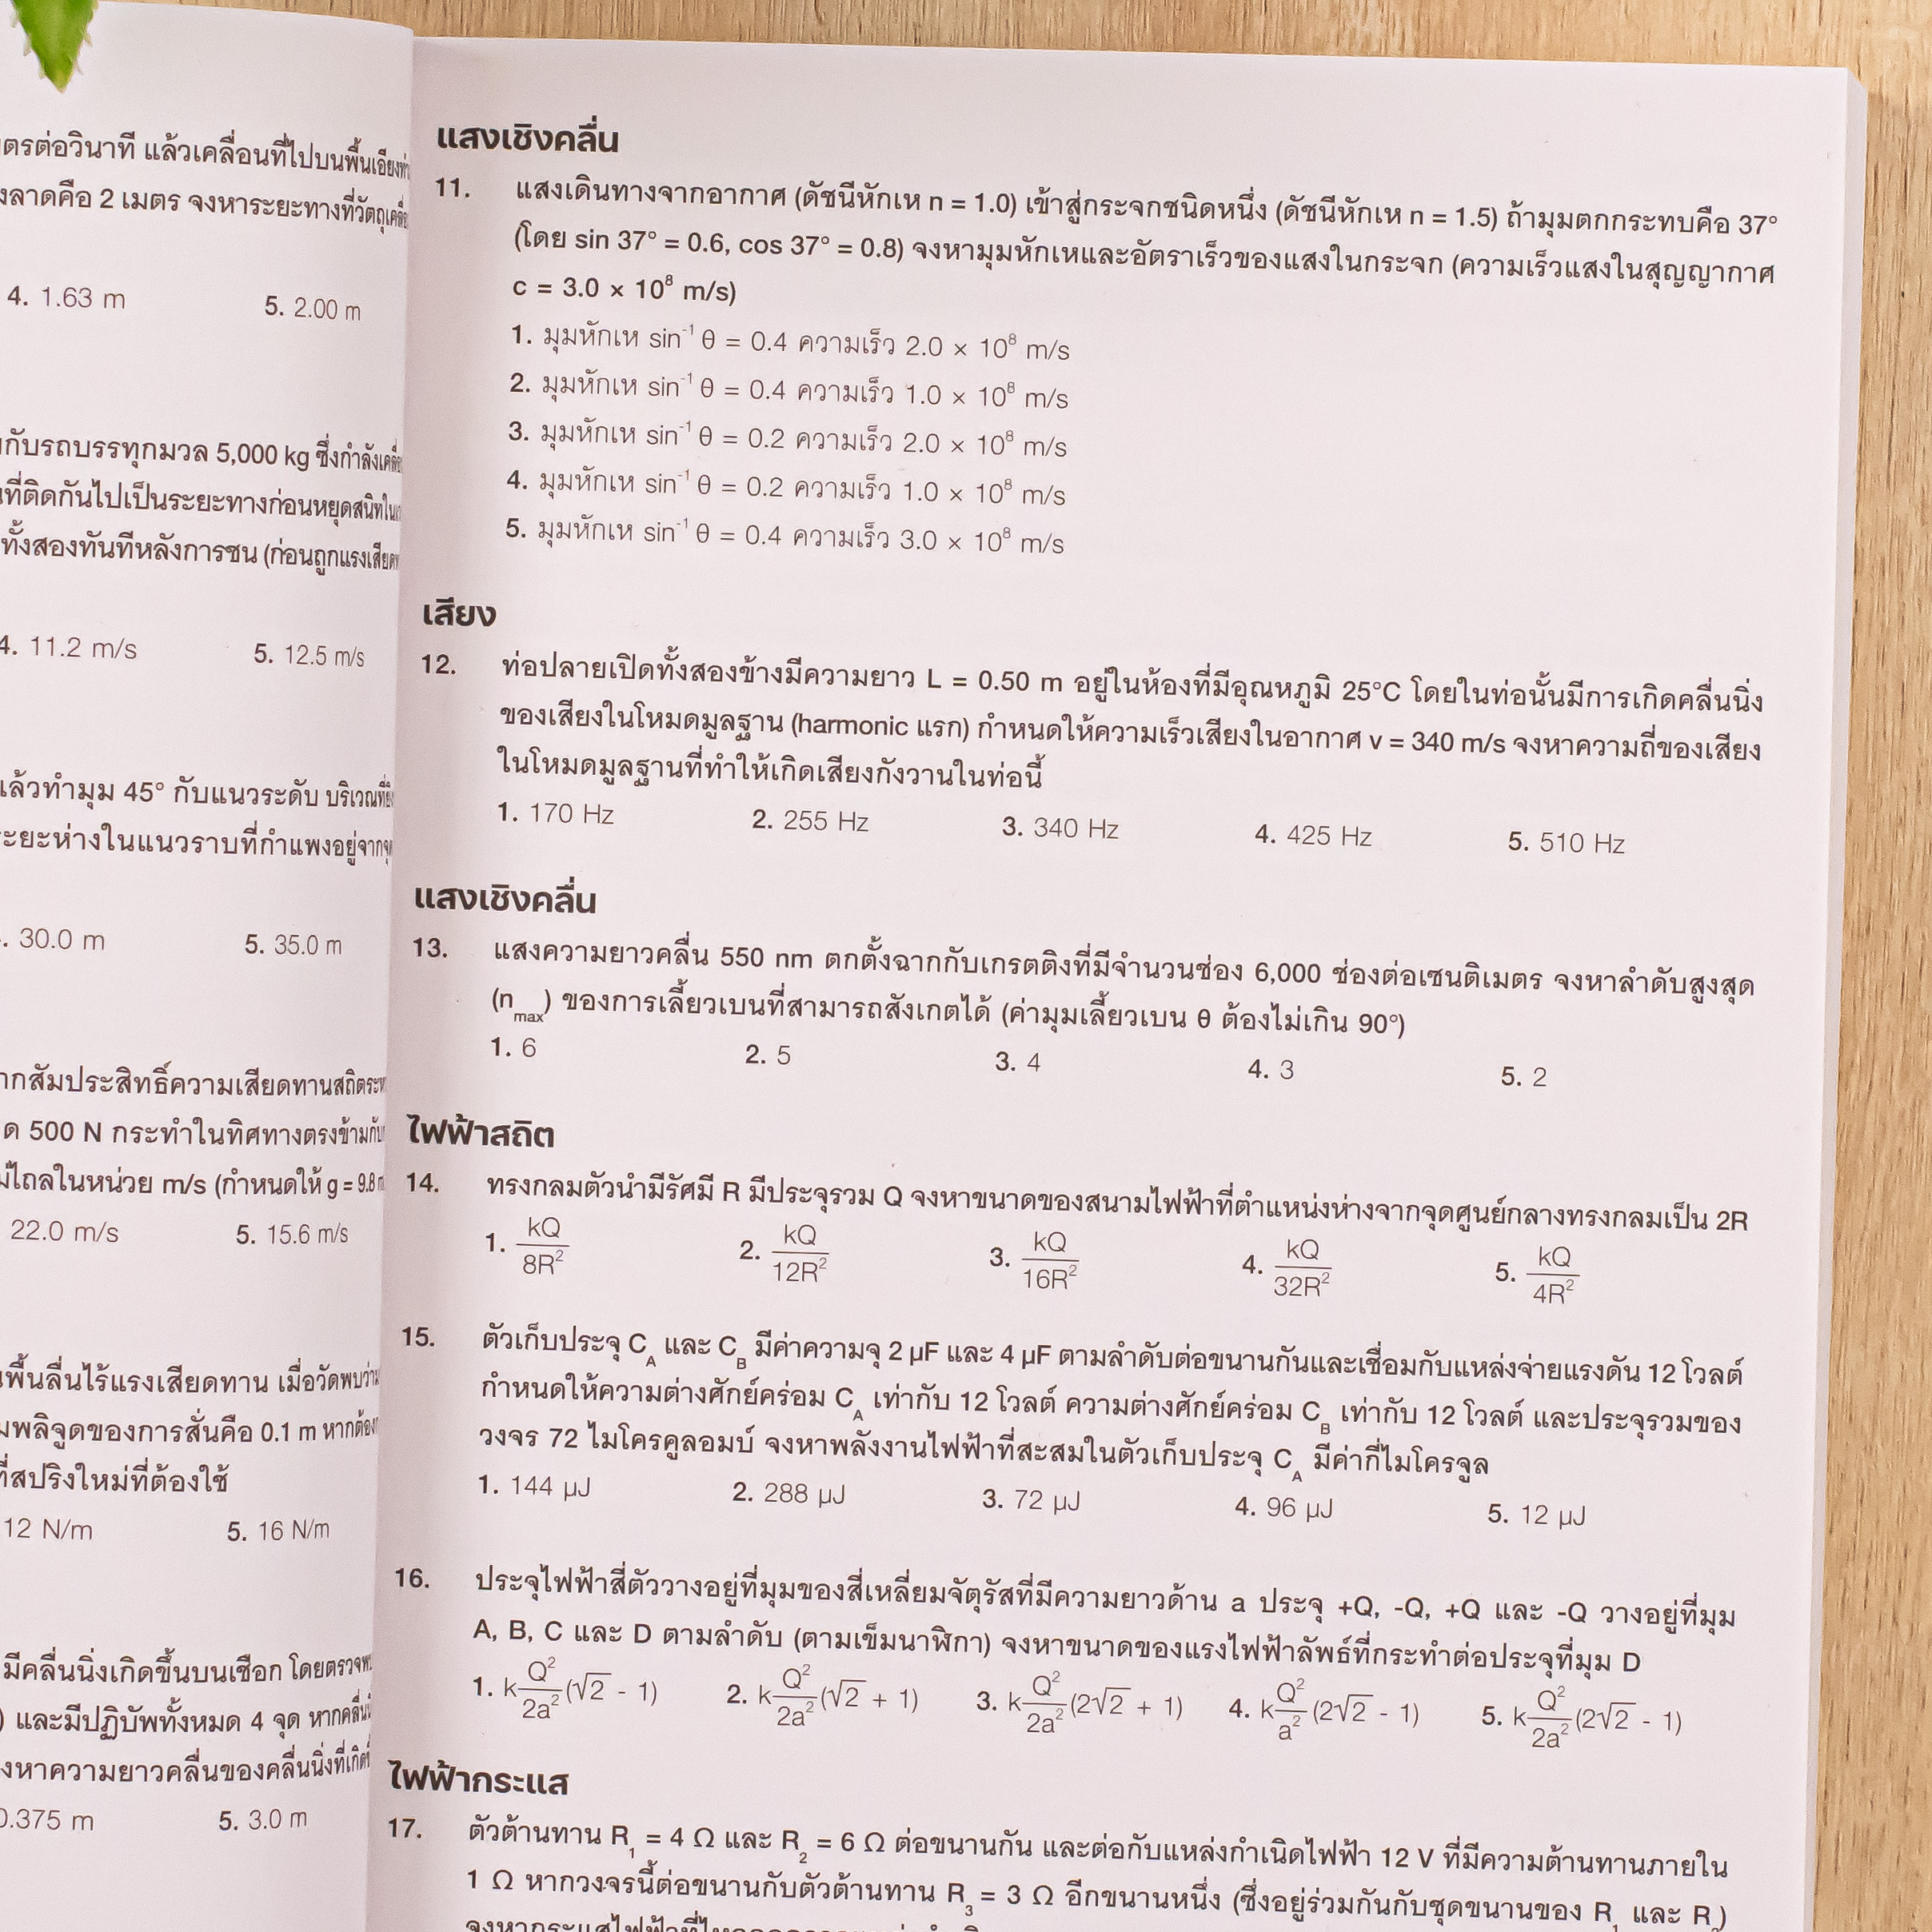 ตรต่อวินาที แล้วเคลื่อนที่ไปบนพื้นเอียง
ลาดคือ 2 เมตร จงหาระยะทางที่วัตถุ
4. 1.63 m 5. 2.00 m
กับรถบรรทุกมวล 5,000 kg ซึ่งกำลัง
ที่ติดกันไปเป็นระยะทางก่อนหยุดสนิท
ทั้งสองทันทีหลังการชน (ก่อนถูกแรงเสียด
4. 11.2 m/s 5. 12.5 m/s
แล้วทำมุม 45° กับแนวระดับ บริเวณที่
ระยะห่างในแนวราบที่กำแพงอยู่จาก
. 30.0 m 5. 35.0 m
ากสัมประสิทธิ์ความเสียดทานสถิต
ด 500 N กระทำในทิศทางตรงข้ามกับ
ม่ไถลในหน่วย m/s (กำหนดให้ g = 9.8
22.0 m/s 5. 15.6 m/s
พื้นลื่นไร้แรงเสียดทาน เมื่อวัดพบว่า
มพลิจูดของการสั่นคือ 0.1 m หากต้อง
ที่สปริงใหม่ที่ต้องใช้
12 N/m 5. 16 N/m
มีคลื่นนิ่งเกิดขึ้นบนเชือก โดยตรวจ
) และมีปฏิบัพทั้งหมด 4 จุด หากคลื่น
งหาความยาวคลื่นของคลื่นนิ่งที่เกิด
0.375 m 5. 3.0 m
แสงเชิงคลื่น
11. แสงเดินทางจากอากาศ (ดัชนีหักเห n = 1.0) เข้าสู่กระจกชนิดหนึ่ง (ดัชนีหักเห n = 1.5) ถ้ามุมตกกระทบคือ 37°
(โดย sin 37° = 0.6, cos 37° = 0.8) จงหามุมหักเหและอัตราเร็วของแสงในกระจก (ความเร็วแสงในสุญญากาศ
c = 3.0 × 10⁸ m/s)
1. มุมหักเห sin⁻¹ θ = 0.4 ความเร็ว 2.0 × 10⁸ m/s
2. มุมหักเห sin⁻¹ θ = 0.4 ความเร็ว 1.0 × 10⁸ m/s
3. มุมหักเห sin⁻¹ θ = 0.2 ความเร็ว 2.0 × 10⁸ m/s
4. มุมหักเห sin⁻¹ θ = 0.2 ความเร็ว 1.0 × 10⁸ m/s
5. มุมหักเห sin⁻¹ θ = 0.4 ความเร็ว 3.0 × 10⁸ m/s
เสียง
12. ท่อปลายเปิดทั้งสองข้างมีความยาว L = 0.50 m อยู่ในห้องที่มีอุณหภูมิ 25°C โดยในท่อนั้นมีการเกิดคลื่นนิ่ง
ของเสียงในโหมดมูลฐาน (harmonic แรก) กำหนดให้ความเร็วเสียงในอากาศ v = 340 m/s จงหาความถี่ของเสียง
ในโหมดมูลฐานที่ทำให้เกิดเสียงกังวานในท่อนี้
1. 170 Hz 2. 255 Hz 3. 340 Hz 4. 425 Hz 5. 510 Hz
แสงเชิงคลื่น
13. แสงความยาวคลื่น 550 nm ตกตั้งฉากกับเกรตติงที่มีจำนวนช่อง 6,000 ช่องต่อเซนติเมตร จงหาลำดับสูงสุด
(n_max) ของการเลี้ยวเบนที่สามารถสังเกตได้ (ค่ามุมเลี้ยวเบน θ ต้องไม่เกิน 90°)
1. 6 2. 5 3. 4 4. 3 5. 2
ไฟฟ้าสถิต
14. ทรงกลมตัวนำมีรัศมี R มีประจุรวม Q จงหาขนาดของสนามไฟฟ้าที่ตำแหน่งห่างจากจุดศูนย์กลางทรงกลมเป็น 2R
1. kQ/8R² 2. kQ/12R² 3. kQ/16R² 4. kQ/32R² 5. kQ/4R²
15. ตัวเก็บประจุ C_A และ C_B มีค่าความจุ 2 µF และ 4 µF ตามลำดับต่อขนานกันและเชื่อมกับแหล่งจ่ายแรงดัน 12 โวลต์
กำหนดให้ความต่างศักย์คร่อม C_A เท่ากับ 12 โวลต์ ความต่างศักย์คร่อม C_B เท่ากับ 12 โวลต์ และประจุรวมของ
วงจร 72 ไมโครคูลอมบ์ จงหาพลังงานไฟฟ้าที่สะสมในตัวเก็บประจุ C_A มีค่ากี่ไมโครจูล
1. 144 µJ 2. 288 µJ 3. 72 µJ 4. 96 µJ 5. 12 µJ
16. ประจุไฟฟ้าสี่ตัววางอยู่ที่มุมของสี่เหลี่ยมจัตุรัสที่มีความยาวด้าน a ประจุ +Q, -Q, +Q และ -Q วางอยู่ที่มุม
A, B, C และ D ตามลำดับ (ตามเข็มนาฬิกา) จงหาขนาดของแรงไฟฟ้าลัพธ์ที่กระทำต่อประจุที่มุม D
1. k Q²/2a² (√2 - 1) 2. k Q²/2a² (√2 + 1) 3. k Q²/2a² (2√2 + 1) 4. k Q²/a² (2√2 - 1) 5. k Q²/2a² (2√2 - 1)
ไฟฟ้ากระแส
17. ตัวต้านทาน R₁ = 4 Ω และ R₂ = 6 Ω ต่อขนานกัน และต่อกับแหล่งกำเนิดไฟฟ้า 12 V ที่มีความต้านทานภายใน
1 Ω หากวงจรนี้ต่อขนานกับตัวต้านทาน R₃ = 3 Ω อีกขนานหนึ่ง (ซึ่งอยู่ร่วมกันกับชุดขนานของ R₁ และ R₂)